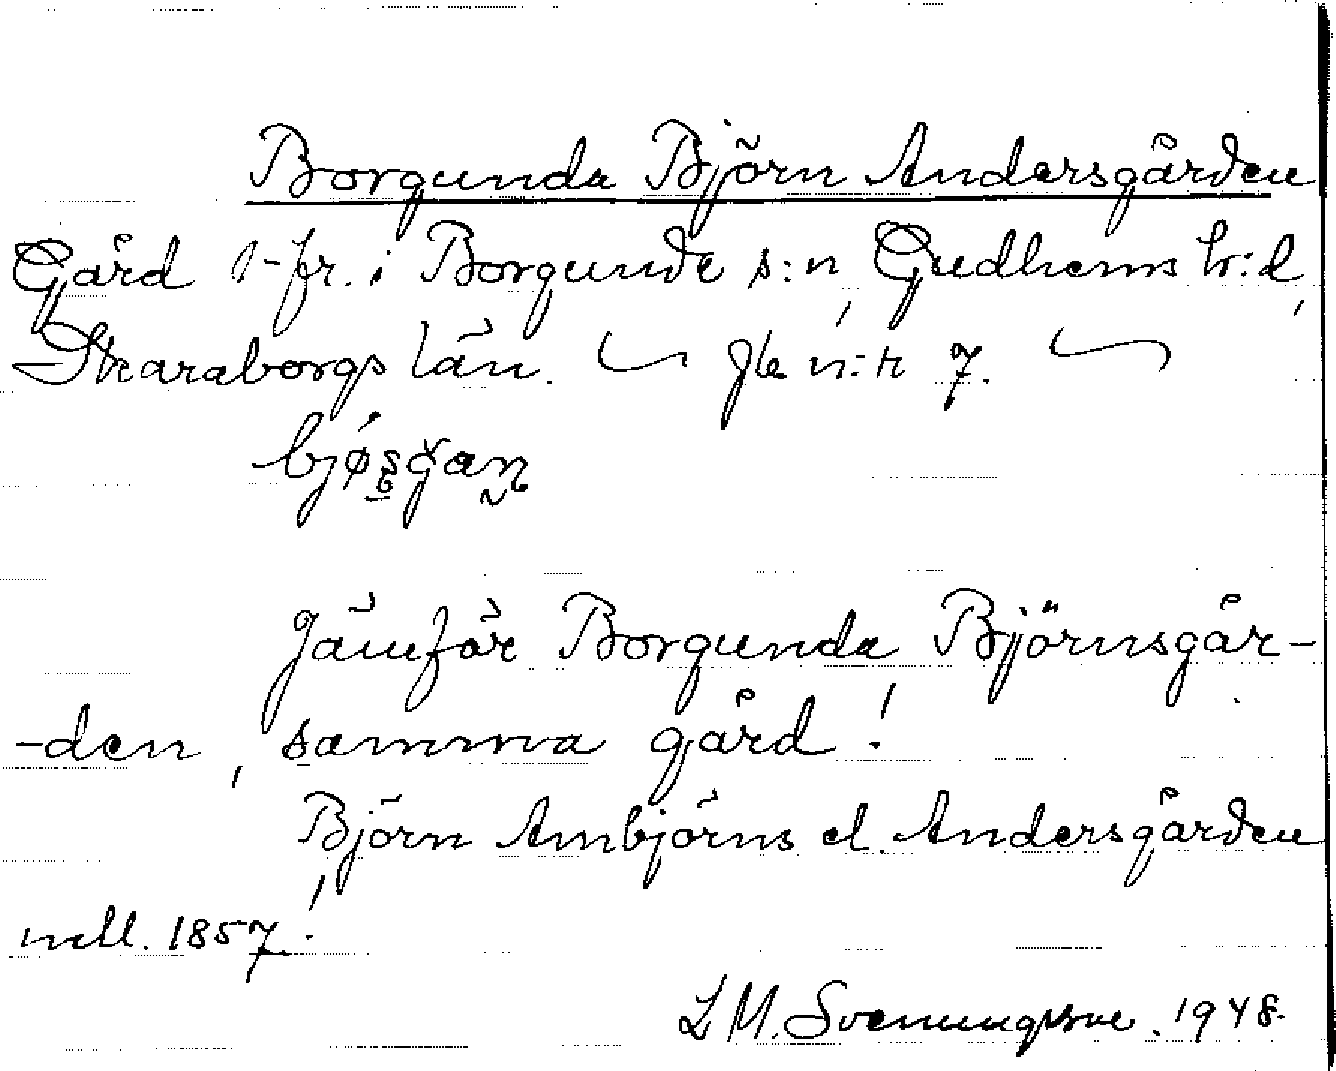 Borgunda Björn Andersgården
Gård i Borgunda s:n, Gudhems h:d,
Skaraborgs län. 7.
Jämför Borgunda Björnsgår-
-den, samma gård!
Björn Ambjörns el. Andersgården
1857!
L M. Svenungsson. 1948.